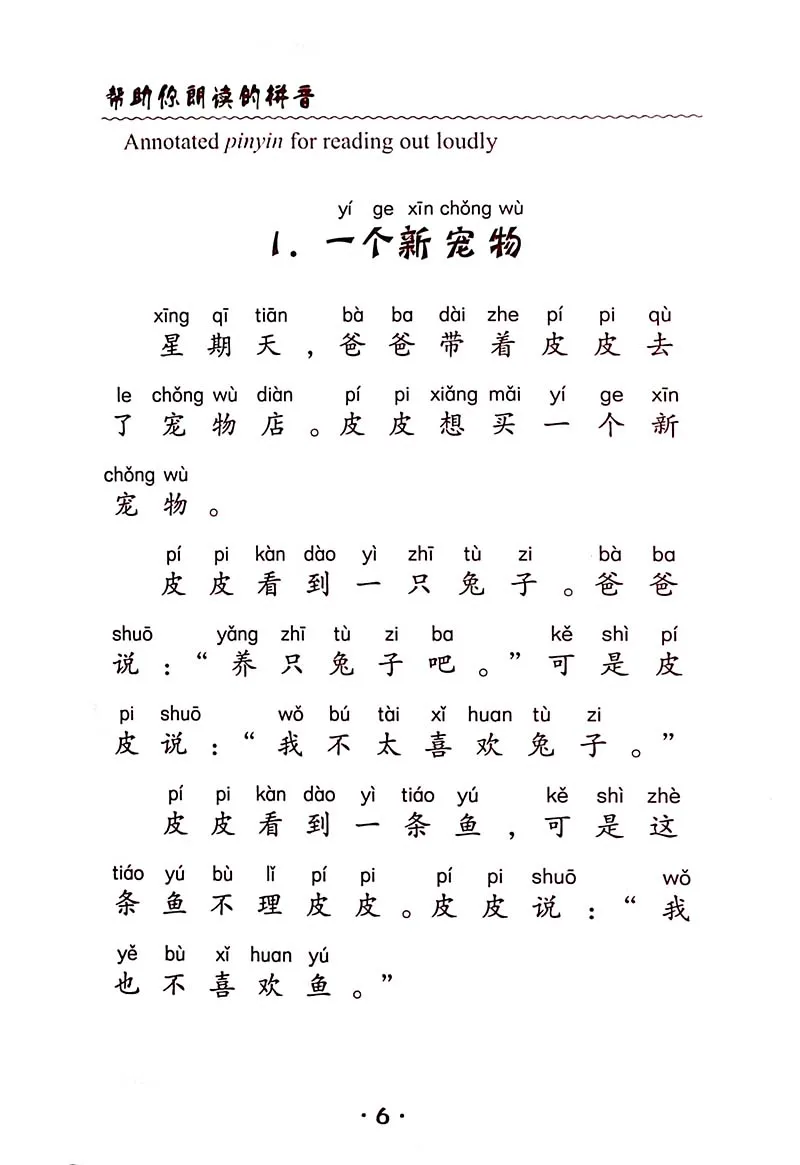 帮助你朗读的拼音
Annotated pinyin for reading out loudly
yí ge xīn chǒng wù
1. 一个新宠物
xīng qī tiān bà ba dài zhe pí pi qù
星期天，爸爸带着皮皮去
le chǒng wù diàn pí pi xiǎng mǎi yí ge xīn
了宠物店。皮皮想买一个新
chǒng wù
宠物。
pí pi kàn dào yì zhī tù zi bà ba
皮皮看到一只兔子。爸爸
shuō yǎng zhī tù zi ba kě shì pí
说：“养只兔子吧。”可是皮
pi shuō wǒ bú tài xǐ huan tù zi
皮说：“我不太喜欢兔子。”
pí pi kàn dào yì tiáo yú kě shì zhè
皮皮看到一条鱼，可是这
tiáo yú bù lǐ pí pi pí pi shuō wǒ
条鱼不理皮皮。皮皮说：“我
yě bù xǐ huan yú
也不喜欢鱼。”
·6·